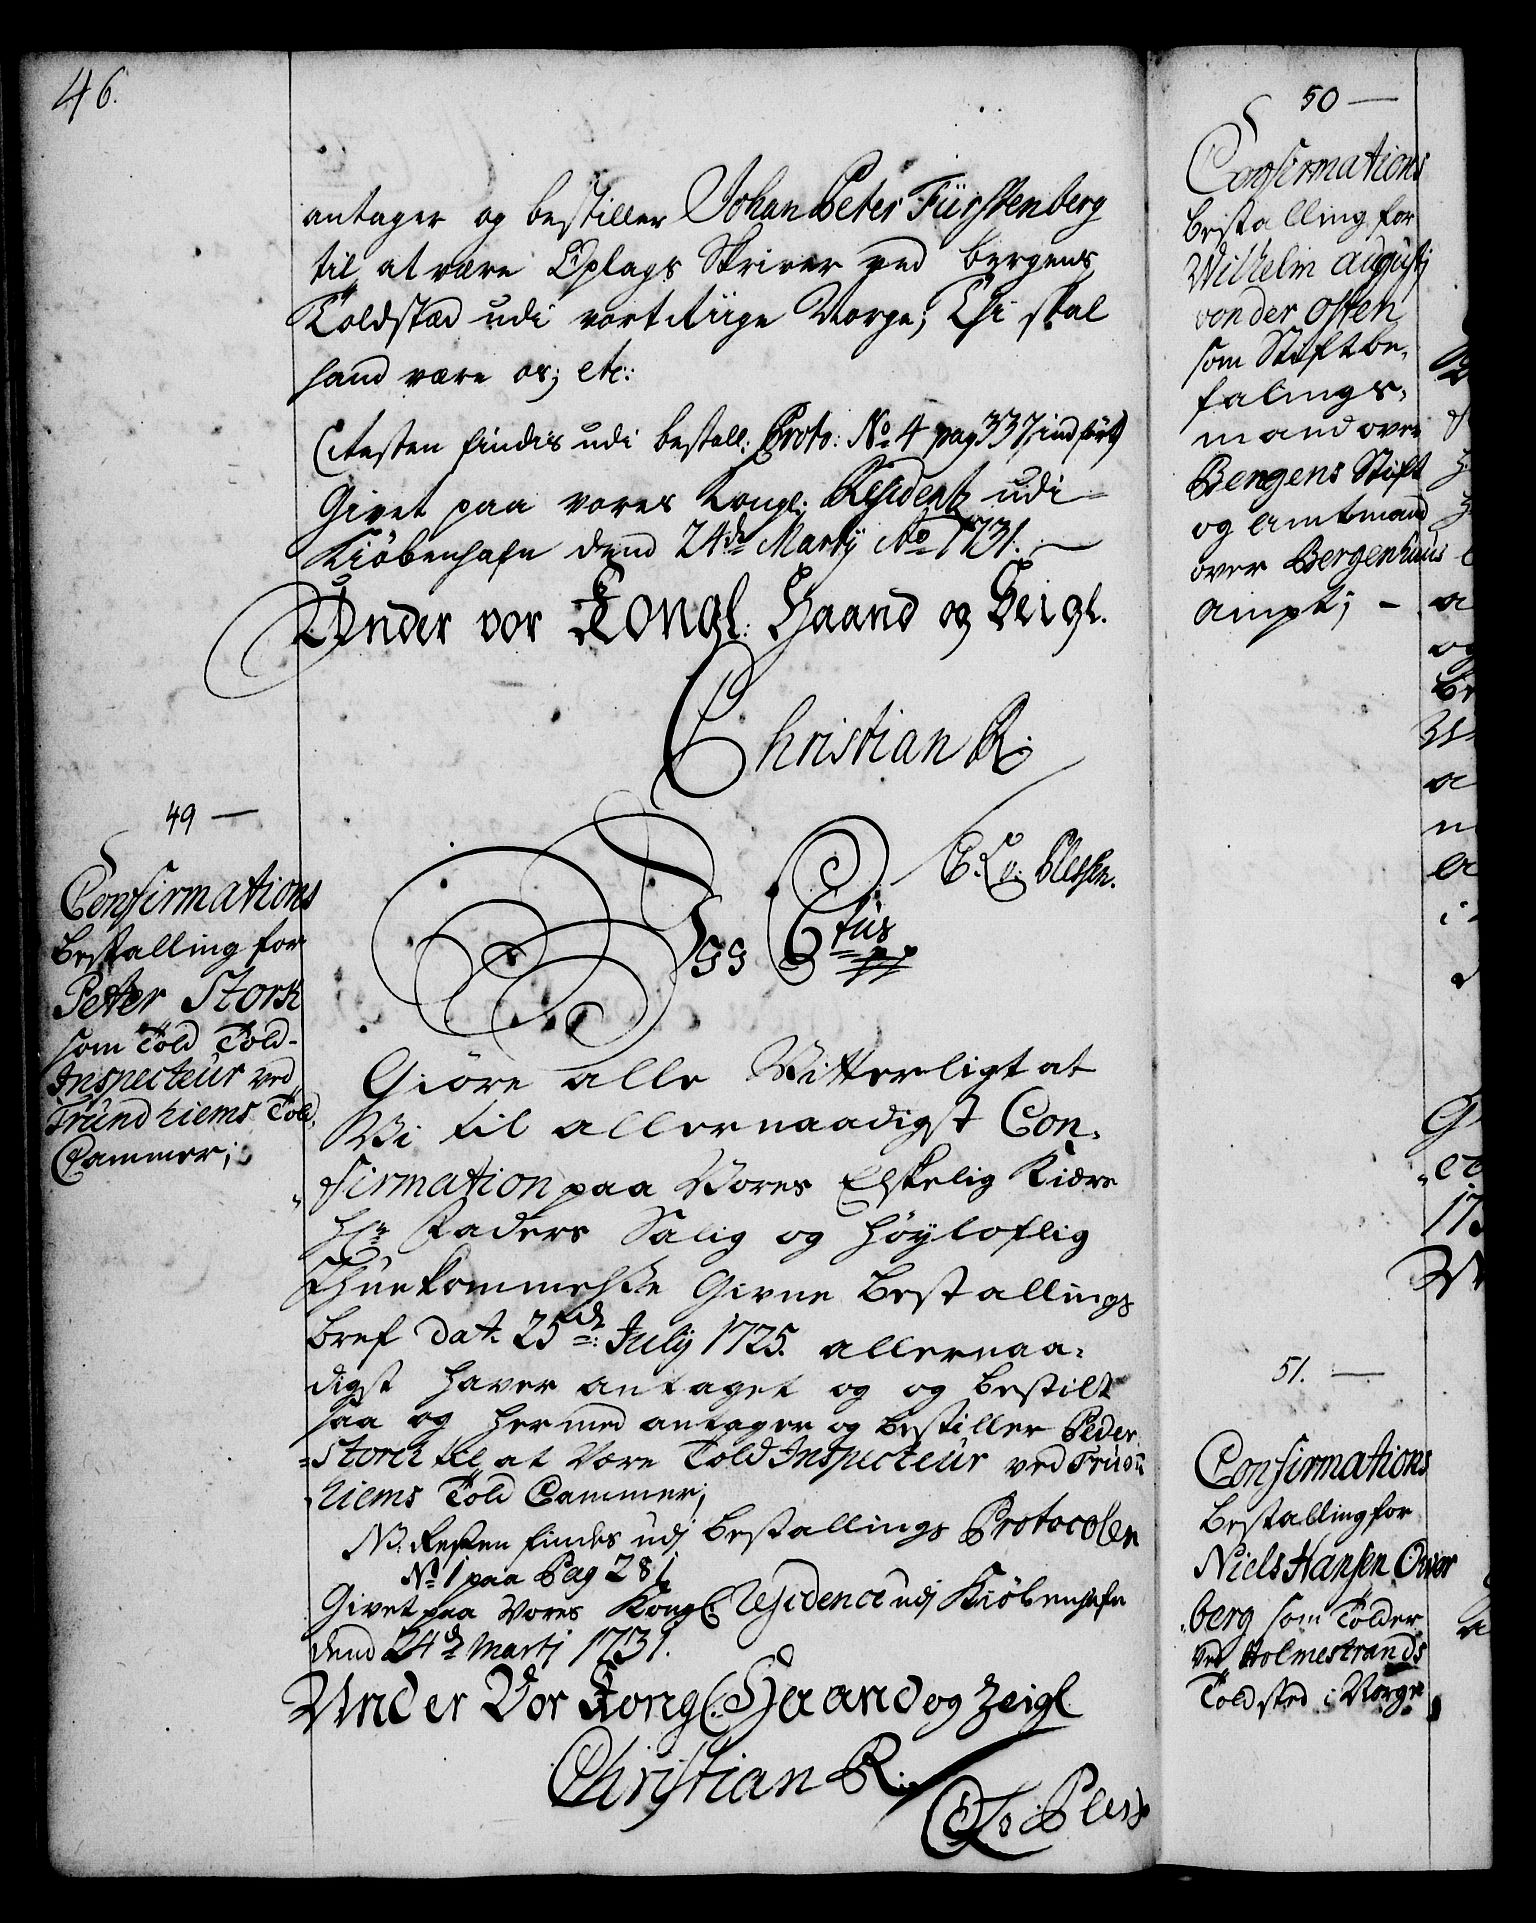 46.
antager og bestiller Johan Peter Fürstenberg
til at være Oplags Skriver ved Bergens
Toldstæd udi vort Riige Norge; Thi skal
hand være os; etc:
Resten findis udi bestall: Proto: No 4 pag 337 indført
Givet paa vores Kongl: Residentz udi
Kiøbenhafn dend 24de Martij Ao 1731.
Under vor Kongl: Haand og Zeigl.
Christian R.
C. A. v. Plessen.
49 —
Confirmations
bestalling for
Peter Stork
som Told Told-
Inspecteur ved
Trundhiems Told
Cammer;
Vii C6tus
Giöre alle Vitterligt at
Wi til allernaadigst Con-
firmation paa Vores Elskelig Kiære
Hr Faders Salig og Høyloflig
Ihuekommelsse Givne bestallings
bref dat. 25de July 1725. allernaa-
digst haver antaget og og bestilt
saa og hermed antager og bestiller Peder
Storck til at være Told Inspecteur ved Trun
hiems Told Cammer;
NB. Resten findes udj bestallings Protocolen
No 1 paa Pag 281
Givet paa Vores Kongl: Residence udj Kiøbenhafn
dend 24de Martj 1731.
Under Vor Kongl. Haand og Zeigl
Christian R.
Pless
50 —
Confirmations
bestalling for
Wilhelm Augustj
von der Osten
som Stiftbe-
falings-
mand over
Bergens Stift
og Amtmand
over Bergenhuus
Ampt; -
51. —
Confirmations
bestalling for
Niels Hansen Over
berg som Tolder
ved Holmestrands
Toldsted i Norge